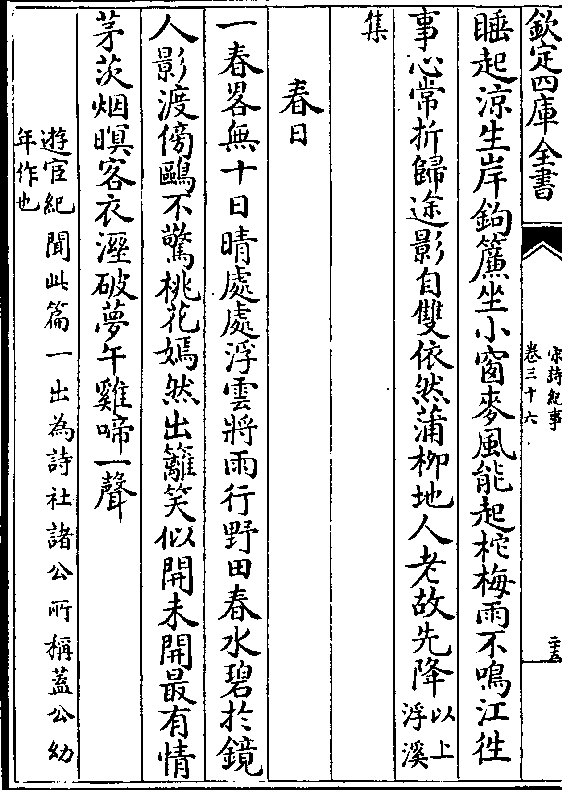 欽定四庫全書
宋詩紀事
卷三十六
二十五
睡起涼生岸鉤簾坐小窗麥風能起柁梅雨不鳴江徃
事心常折歸途影自雙依然蒲柳地人老故先降以上
浮溪
集
春日
一春畧無十日晴處處浮雲將雨行野田春水碧於鏡
人影渡傍鷗不驚桃花嫣然出籬笑似開未開最有情
茅茨烟暝客衣溼破夢午雞啼一聲
遊宦紀聞此篇一出為詩社諸公所稱蓋公幼
年作也